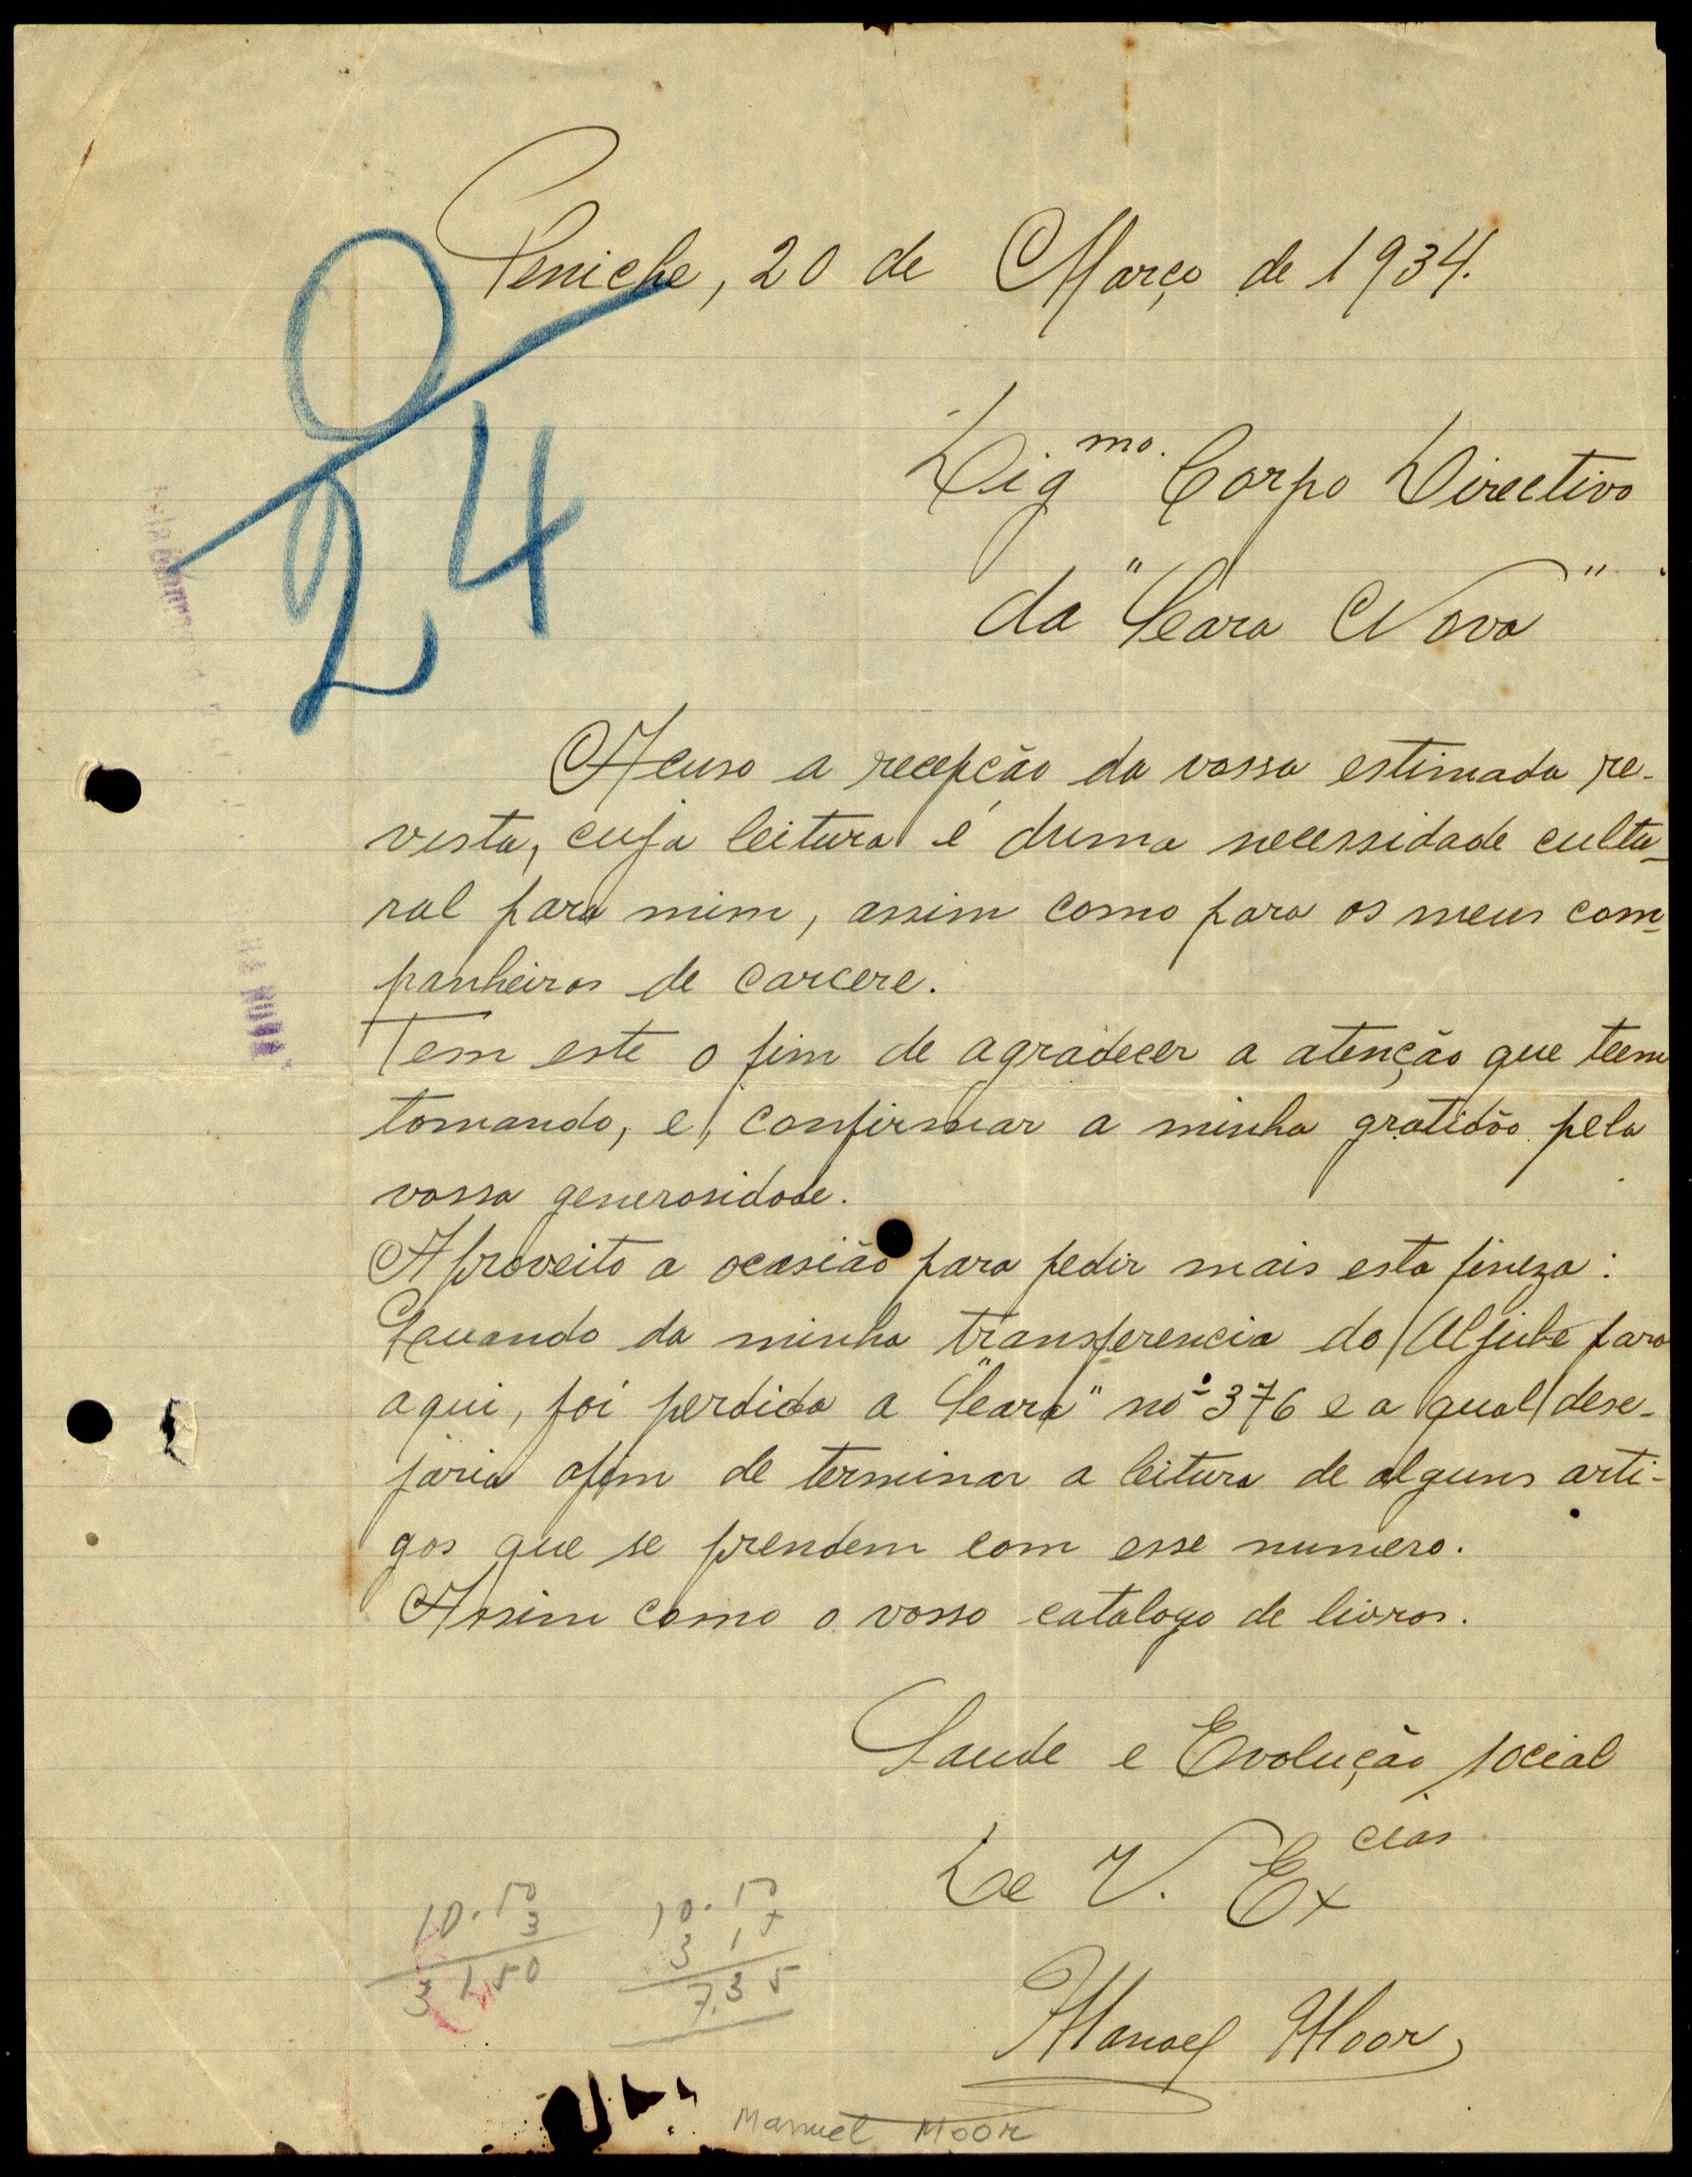 Peniche, 20 de Março de 1934.
0
24
Dig.mo Corpo Directivo
da "Seara Nova"
Acuso a recepcão da vossa estimada re-
vista, cuja leitura é duma necessidade cultu-
ral para mim, assim como para os meus com-
panheiros de carcere.
Tem este o fim de agradecer a atenção que teem
tomando, e, confirmar a minha gratidão pela
vossa generosidade.
Aproveito a ocasião para pedir mais esta fineza:
Quando da minha transferencia do Aljube para
aqui, foi perdida a "Seara" nº 376 e a qual dese-
jaria afim de terminar a leitura de alguns arti-
gos que se prendem com esse numero.
Assim como o vosso catalogo de livros.
Saude e Evolução social
De V. Excias
Manoel Moor
10.50 10.50
3 3 17
31,50 7,35
Manuel Moor